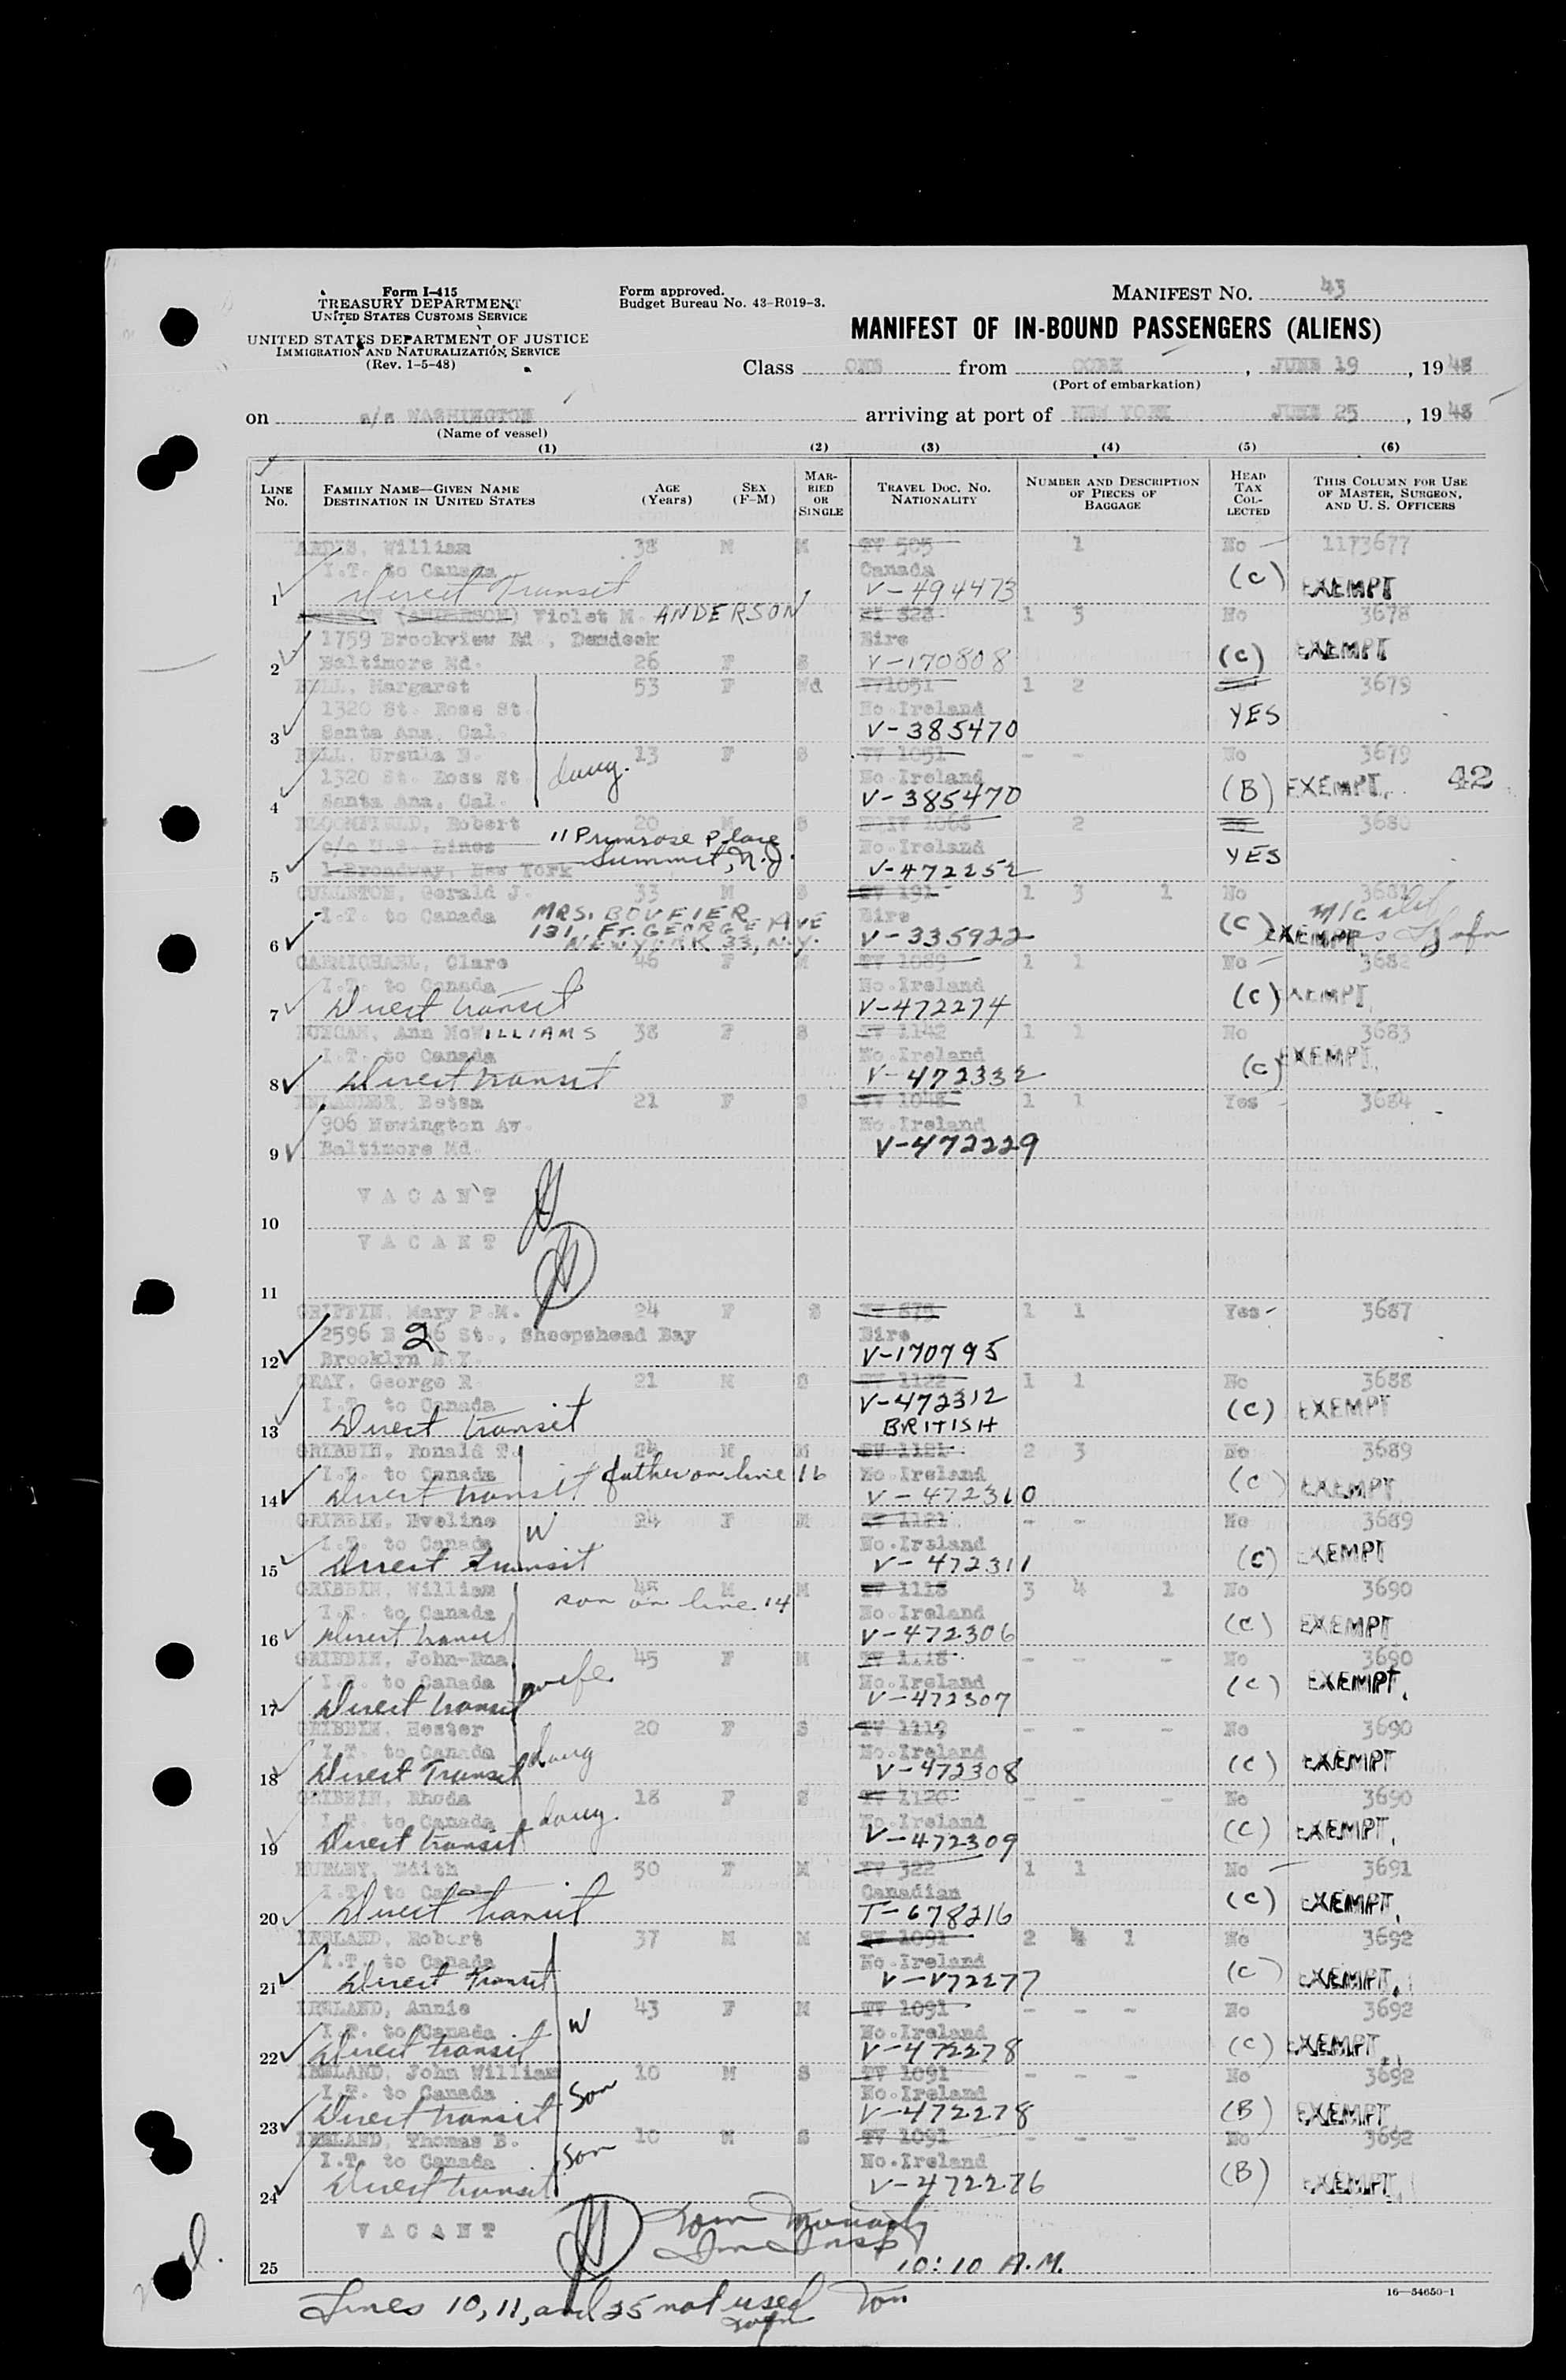 Form I-415
TREASURY DEPARTMENT
UNITED STATES CUSTOMS SERVICE
UNITED STATES DEPARTMENT OF JUSTICE
IMMIGRATION AND NATURALIZATION SERVICE
(Rev. 1-5-48)
Form approved.
Budget Bureau No. 43-R019-3.
MANIFEST No. 43
MANIFEST OF IN-BOUND PASSENGERS (ALIENS)
Class ONE from COBH, JUNE 19, 1948
(Port of embarkation)
on s/s WASHINGTON arriving at port of NEW YORK JUNE 25, 1948
(Name of vessel)
(1) (2) (3) (4) (5) (6)
LINE No. FAMILY NAME—GIVEN NAME DESTINATION IN UNITED STATES AGE (Years) SEX (F-M) MARRIED OR SINGLE TRAVEL DOC. NO. NATIONALITY NUMBER AND DESCRIPTION OF PIECES OF BAGGAGE HEAD TAX COLLECTED THIS COLUMN FOR USE OF MASTER, SURGEON, AND U. S. OFFICERS
ARDIS, William 38 M M TV 505 1 No 1173677
I.T. to Canada Canada (C) EXEMPT
1 Direct Transit V-494473
(ANDERSON) Violet M. ANDERSON 323 1 3 No 3678
1759 Brookview Rd., Dundock Eire
2 Baltimore Md. 26 F S V-170808 (C) EXEMPT
BELL, Margaret 53 F Wd TV1051 1 2 3679
1320 St. Ross St. No.Ireland YES
3 Santa Ana, Cal. V-385470
BELL, Ursula 13 F S TV 1051 - - No 3679
1320 St. Ross St. daug. No.Ireland
4 Santa Ana, Cal. V-385470 (B) EXEMPT. 42
BLOOMFIELD, Robert 20 M S 1068 2 3680
c/o U.S. Lines 11 Primrose Place No.Ireland YES
5 1 Broadway, New York Summit, N.J. V-472252
CULLETON, Gerald J. 33 M S TV 191 1 3 1 No 3681
I.T. to Canada MRS. BOUFIER Eire
131, FT. GEORGE AVE
6 NEW YORK 33, N.Y. V-335922 (C) EXEMPT
CARMICHAEL, Clare 46 F M TV 1089 1 1 No 3682
I.T. to Canada No.Ireland
7 Direct transit V-472274 (C) EXEMPT.
DUNCAN, Ann McWILLIAMS 38 F S TV 1142 1 1 No 3683
I.T. to Canada No.Ireland EXEMPT.
8 Direct transit V-472332 (C)
Betsa 21 F S TV 1048 1 1 Yes 3684
906 Newington Av. No.Ireland
9 Baltimore Md. V-472229
VACANT
10
VACANT
11
GRIFFIN, Mary P.M. 24 F S TV 875 1 1 Yes 3687
2596 E 26 St., Sheepshead Bay Eire
12 Brooklyn N.Y. V-170795
GRAY, George R. 21 M S TV 1122 1 1 No 3688
I.T. to Canada V-472312 (C) EXEMPT
13 Direct transit BRITISH
GRIBBIN, Ronald T. 24 M M TV 1121 2 3 No 3689
I.T. to Canada father on line 16 No.Ireland (C) EXEMPT
14 Direct transit V-472310
GRIBBIN, Eveline 24 F M TV 1121 - - No 3689
I.T. to Canada W No.Ireland
15 Direct transit V-472311 (C) EXEMPT
GRIBBIN, William 48 M M TV 1118 3 4 1 No 3690
I.T. to Canada son on line 14 No.Ireland
16 Direct transit V-472306 (C) EXEMPT
GRIBBIN, John-Ena 45 F M TV 1118 - - - No 3690
I.T. to Canada wife No.Ireland
17 Direct transit V-472307 (C) EXEMPT.
GRIBBIN, Hester 20 F S TV 1119 - - - No 3690
I.T. to Canada daug No.Ireland
18 Direct Transit V-472308 (C) EXEMPT
GRIBBIN, Rhoda 18 F S TV 1120 - - - No 3690
I.T. to Canada daug. No.Ireland
19 Direct transit V-472309 (C) EXEMPT.
HURLEY, Edith 50 F M TV 322 1 1 No 3691
I.T. to Canada Canadian
20 Direct transit T-678216 (C) EXEMPT.
IRELAND, Robert 37 M M TV 1091 2 4 1 No 3692
I.T. to Canada No.Ireland
21 Direct transit V-V72277 (C) EXEMPT.
IRELAND, Annie 43 F M TV 1091 - - - No 3692
I.T. to Canada W No.Ireland
22 Direct transit V-472278 (C) EXEMPT.
IRELAND, John William 10 M S TV 1091 - - - No 3692
I.T. to Canada Son No.Ireland
23 Direct transit V-472278 (B) EXEMPT
IRELAND, Thomas B. 10 M S TV 1091 - - - No 3692
I.T. to Canada Son No.Ireland
24 Direct transit V-472276 (B) EXEMPT.
VACANT
25 10:10 A.M.
16-54650-1
Lines 10, 11, and 25 not used